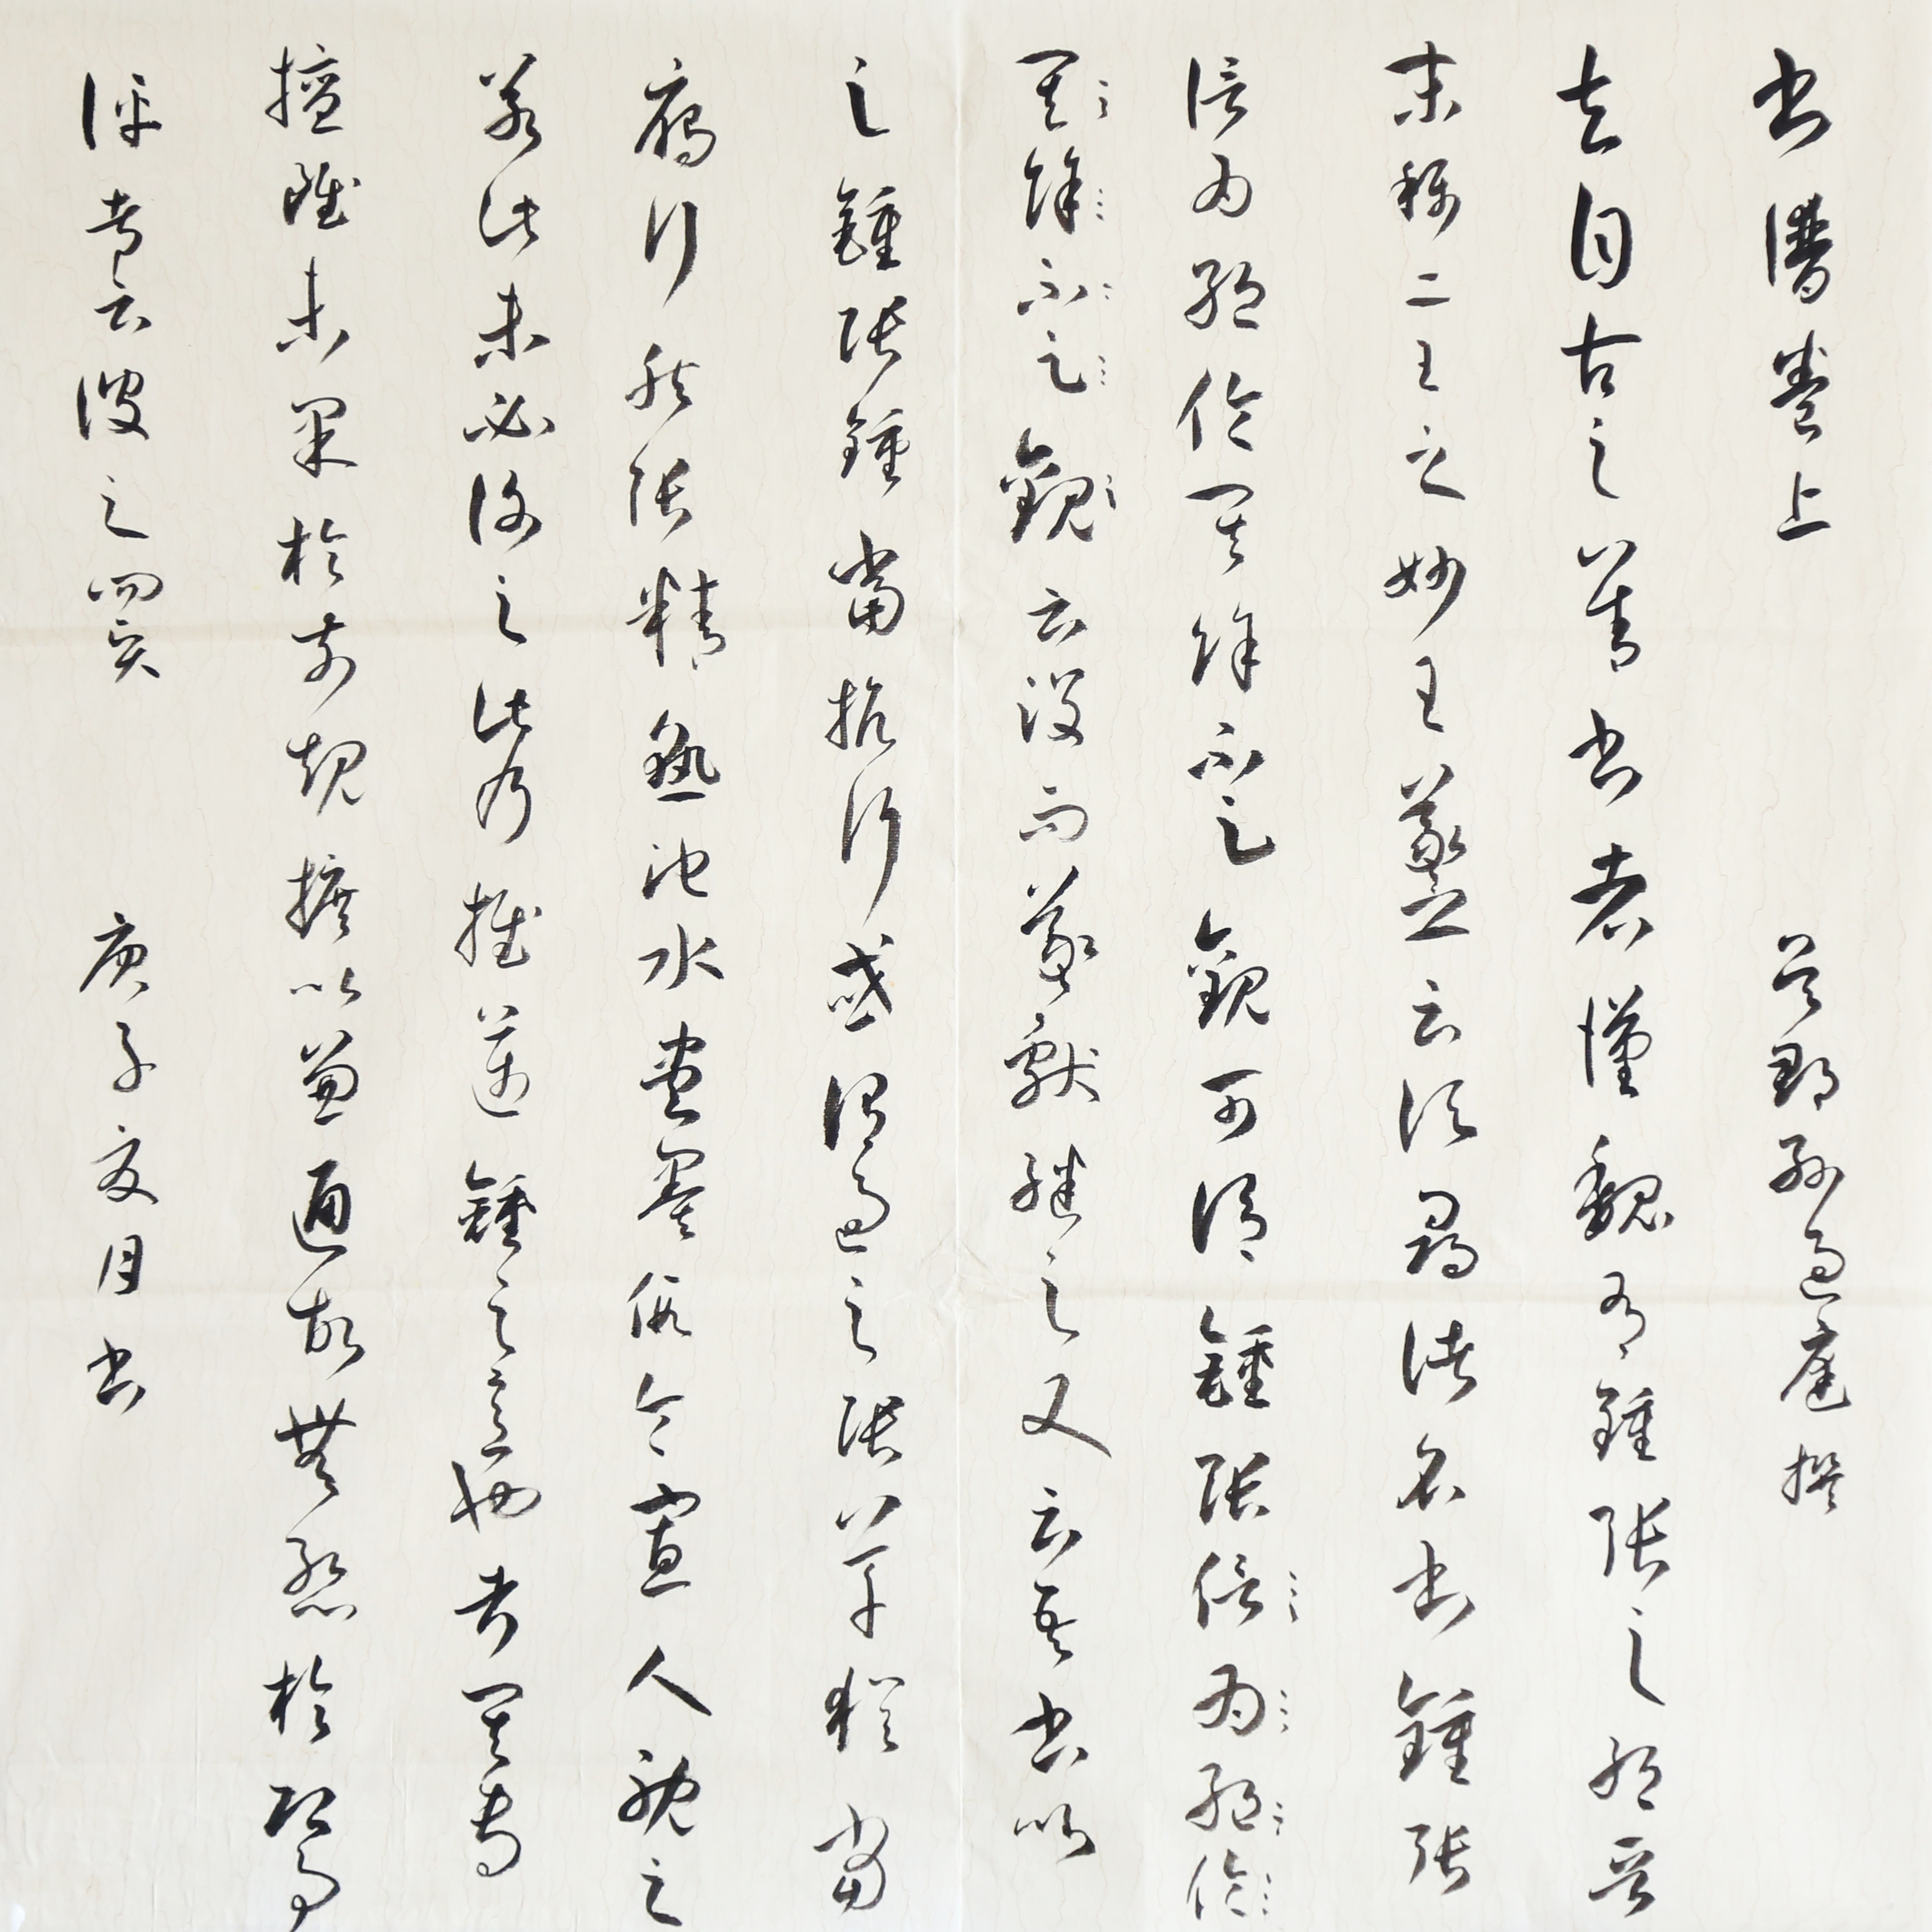 書譜卷上 吳郡孫過庭撰
夫自古之善書者漢魏有鍾張之絕晉
末稱二王之妙王羲之云頃尋諸名書鍾張
信為絕倫其餘不足觀可謂鍾張信為絕倫
其餘不足觀云沒而羲獻繼之又云吾書比
之鍾張鍾當抗行或謂過之張草猶當
鴈行然張精熟池水盡墨假令寡人耽之
若此未必謝之此乃推邁鍾之意也考其專
擅雖未果於前規摭以兼通故無慙於即事
評者云彼之四賢 庚子夏月書